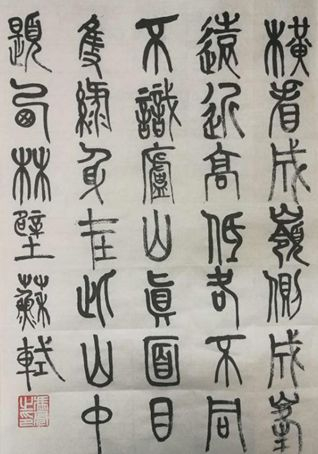 橫看成嶺側成峯
遠近高低各不同
不識廬山眞面目
隻緣身在此山中
題西林壁蘇軾